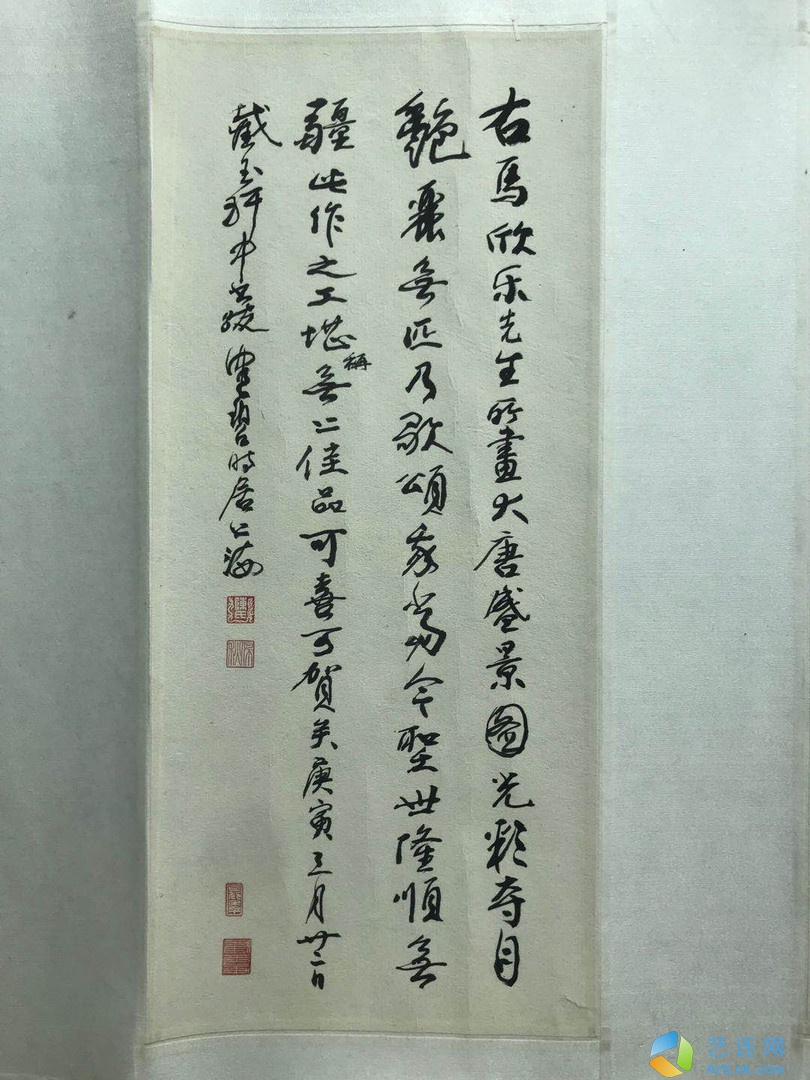 右馬欣乐先生所畫大唐盛景圖光彩夺目
艷麗無匹乃歌頌我當今聖世隆順無
疆此作之工堪稱無二佳品可喜可賀矣庚寅三月廿二日
戴 時居上海
艺连网